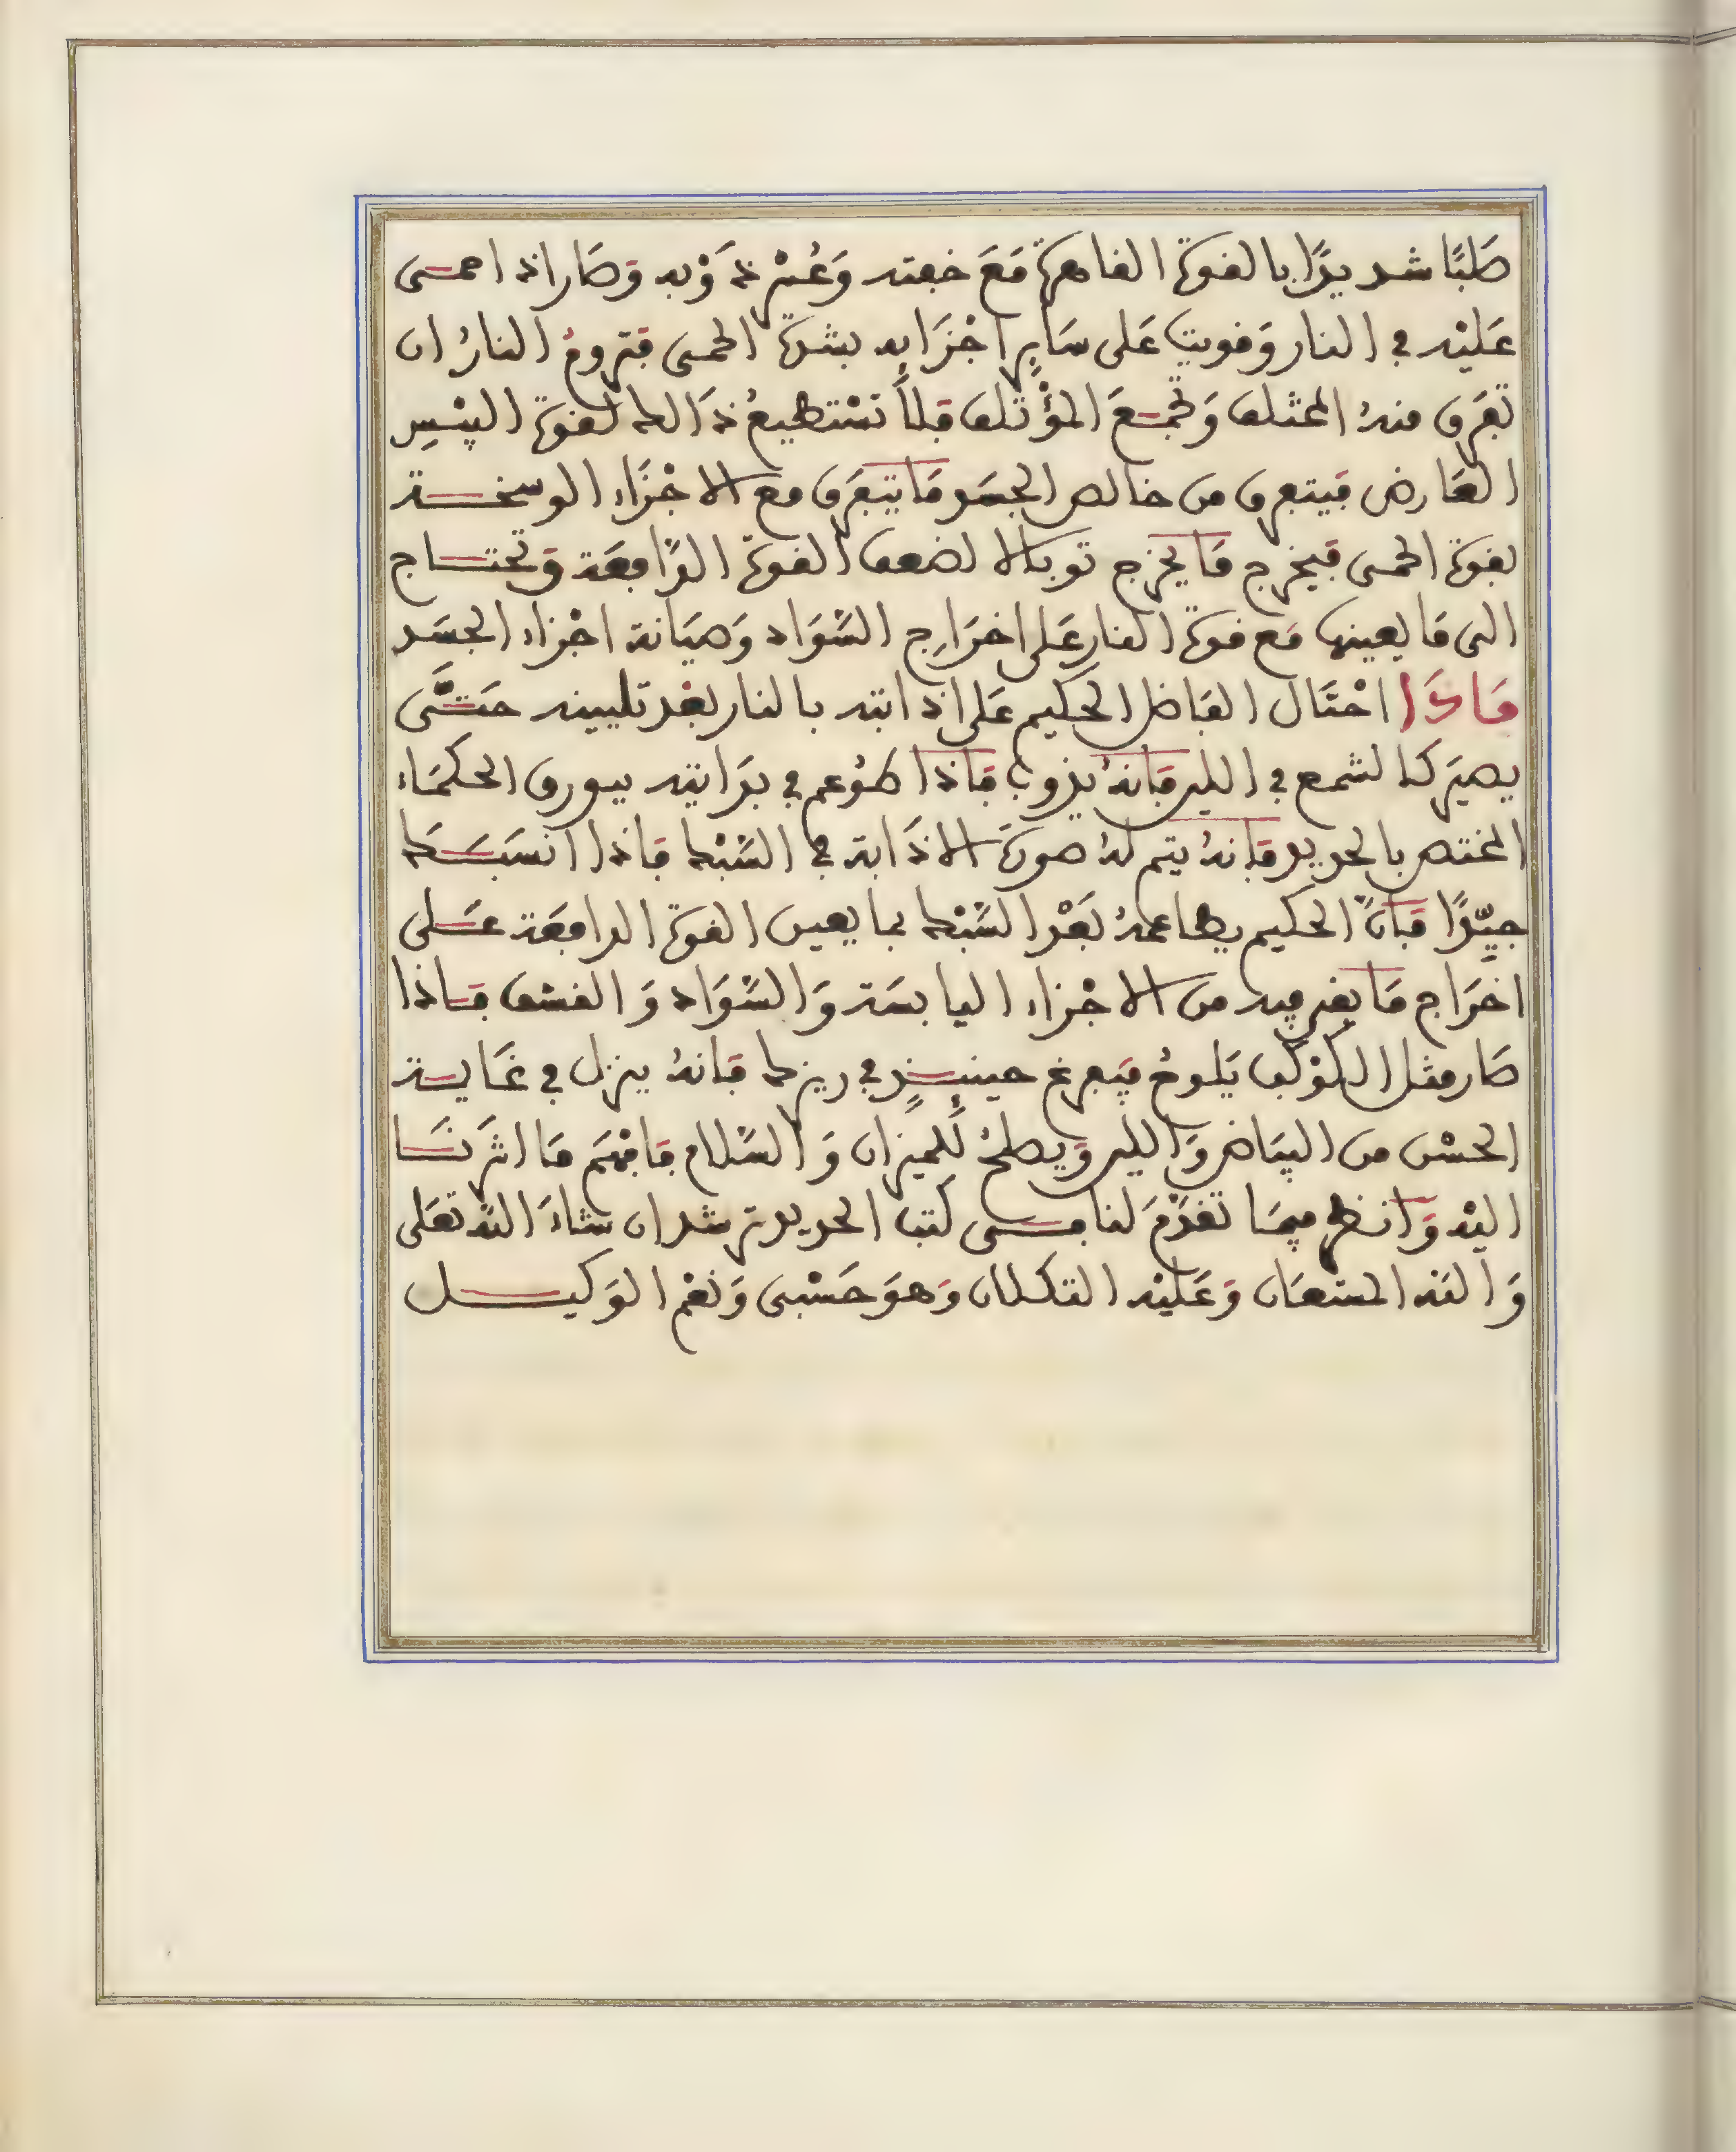 صَلبًا شديدًا بالقوة القاهرة مَعَ خفته وَعُسْر ذَوْبه وَصَار اذا حمى
عَلَيْه في النار وَقويت عَلى سَايِر اجْزَايه بشدة الحمى فتروم النارُ ان
تفَرق منهُ المختلف وَتجمَعَ المؤْتلف فلاَ تسْتطيعُ ذَالك لقوة اليبْسِ
العَارض فيتفرق من خالص الجسَد مَا يَتفَرق مع الاجْزَاء الوسخة
لقوة الحمى فيخرج مَا يخرج توبالا لضعف القوة الدَّافعَة وَتحتاج
الى مَا يعينها مَع قوة النار عَلى اخرَاجِ السَّوَاد وَصيَانة اجْزاء الجسَد
فَاذَا احْتَال الفَاضل الحكيم عَلى اذابته بالنار بَعْد تليينه حَتَّى
يصيَر كالشمع في اللين فَانهُ يذوب فَاذا طوُعم في بدَايته ببورق الحكمَاء
المختص بالحديد فَانهُ يتم لهُ صورَة الاذَابة في السَّبْك فاذا انسَبَك
جيِّدًا فَانَّ الحكيم يطاعمهُ بَعْد السَّبْك بما يعين القوة الدافعَة عَلى
اخرَاج مَا بقي فيه من الاجْزاء اليابسَة وَالسَّوَاد وَالقشف فاذا
صَار مثل الكوْكب يَلوحُ فيَفرغ حينئذٍ في ريزك فانهُ ينزل في غَاية
الحسْن من البيَاض وَاللين وَيصْلحُ لِلميزان وَالسَّلام فافهَم مَا اشرْنَا
اليْه وَانظر فيمَا تقدَّمَ لنا من كتب الحديد ترشد ان شاءَ اللَّه تعَلى
وَاللَّه المستعَان وَعَليْه التكلان وَهوَ حَسْبى وَنعْم الوَكيل